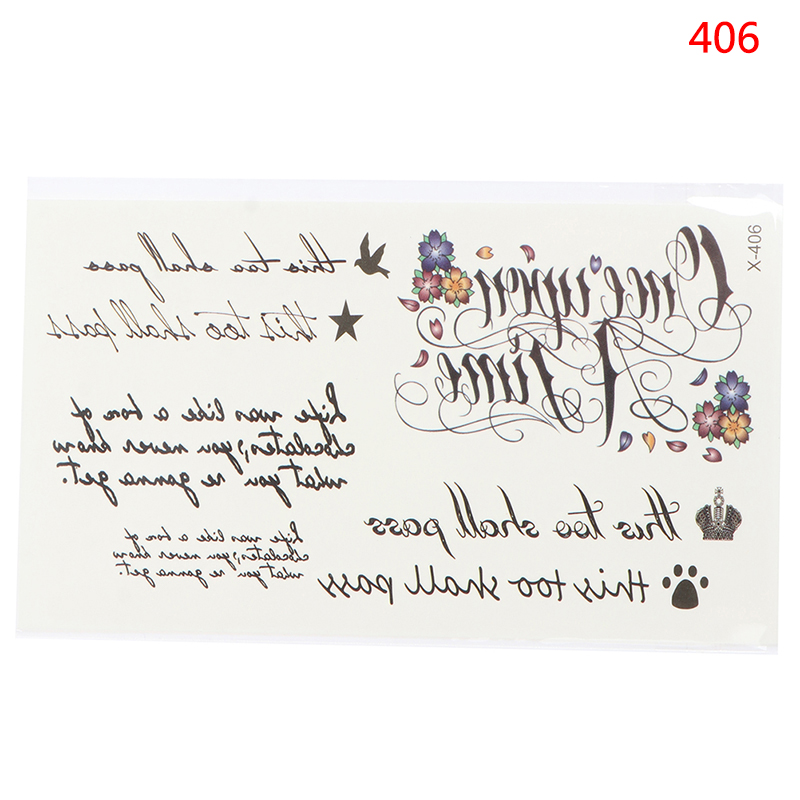 406
X-406
this too shall pass
this too shall pass
Life was like a box of
chocolates, you never know
what you're gonna get.
Life was like a box of
chocolates, you never know
what you're gonna get.
Once upon
A Time
this too shall pass
this too shall pass